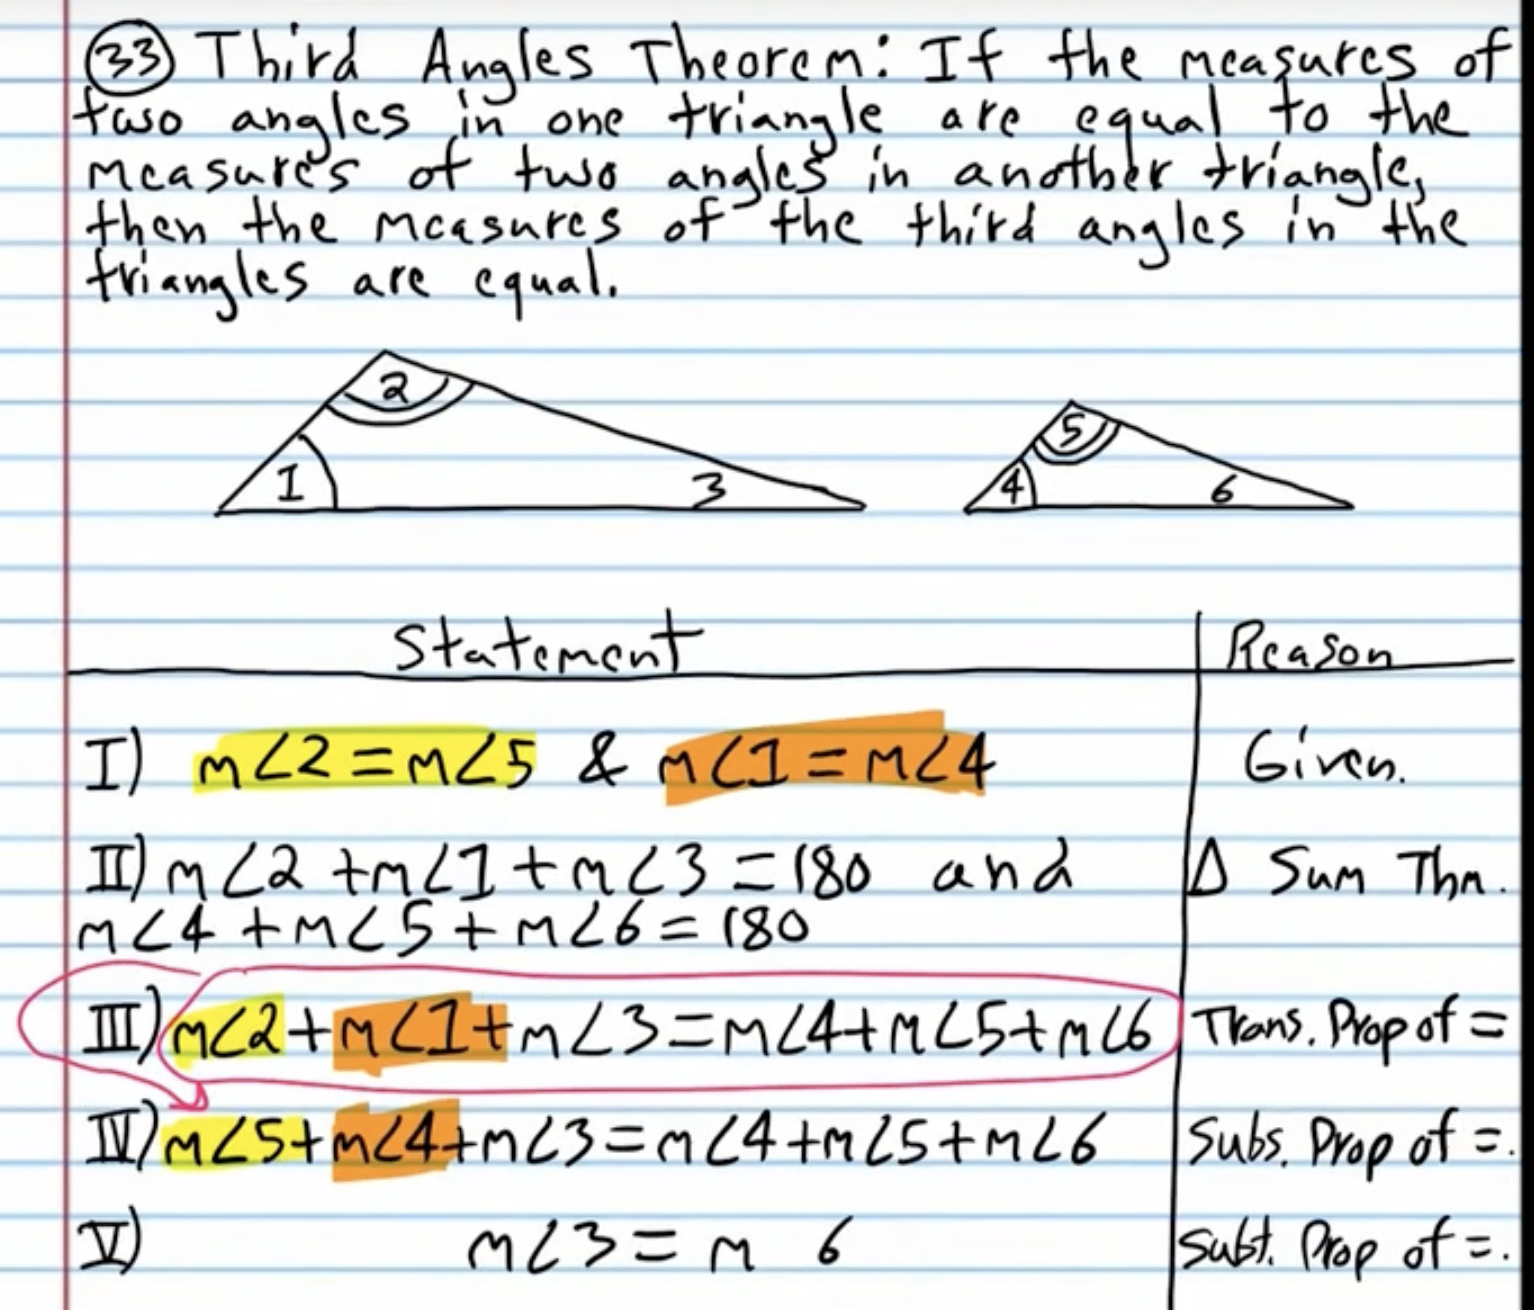 33 Third Angles Theorem: If the measures of
two angles in one triangle are equal to the
measures of two angles in another triangle,
then the measures of the third angles in the
triangles are equal.
2
1
3
5
4
6
Statement Reason
I) m∠2=m∠5 & m∠1=m∠4 Given.
II) m∠2+m∠1+m∠3=180 and Δ Sum Thm.
m∠4+m∠5+m∠6=180
III) m∠2+m∠1+m∠3=m∠4+m∠5+m∠6 Trans. Prop of =
IV) m∠5+m∠4+m∠3=m∠4+m∠5+m∠6 Subs. Prop of =.
V) m∠3=m 6 Subt. Prop of =.